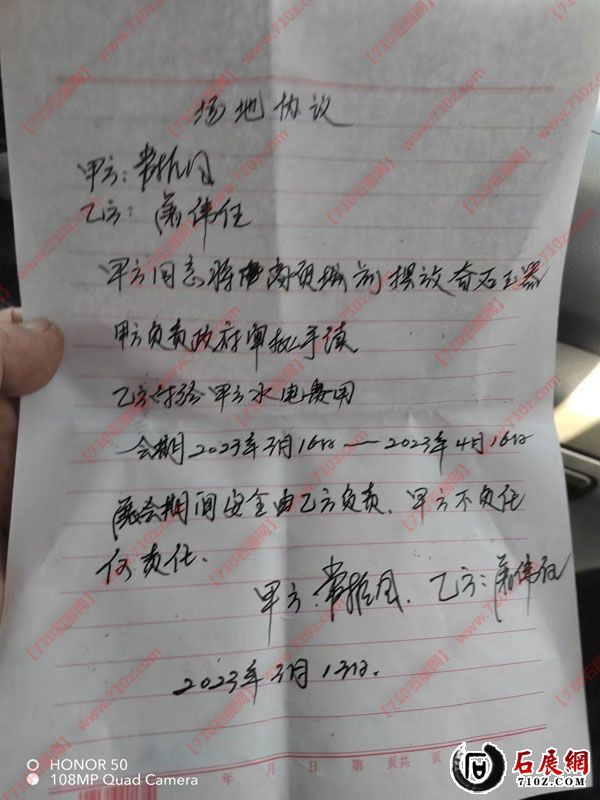 场地协议
甲方:常
乙方: 萧伟任
甲方同意将 前摆放奇石玉器
甲方负责政府审批手续
乙方付给甲方水电费用
会期2023年3月16日——2023年4月16日
展会期间安全由乙方负责,甲方不负任
何责任.
甲方:常 乙方:萧伟任
2023年3月13日.
年 月 日 第 页共 页
HONOR 50
108MP Quad Camera
石展網
710Z.COM
【710石展网】www.710z.com